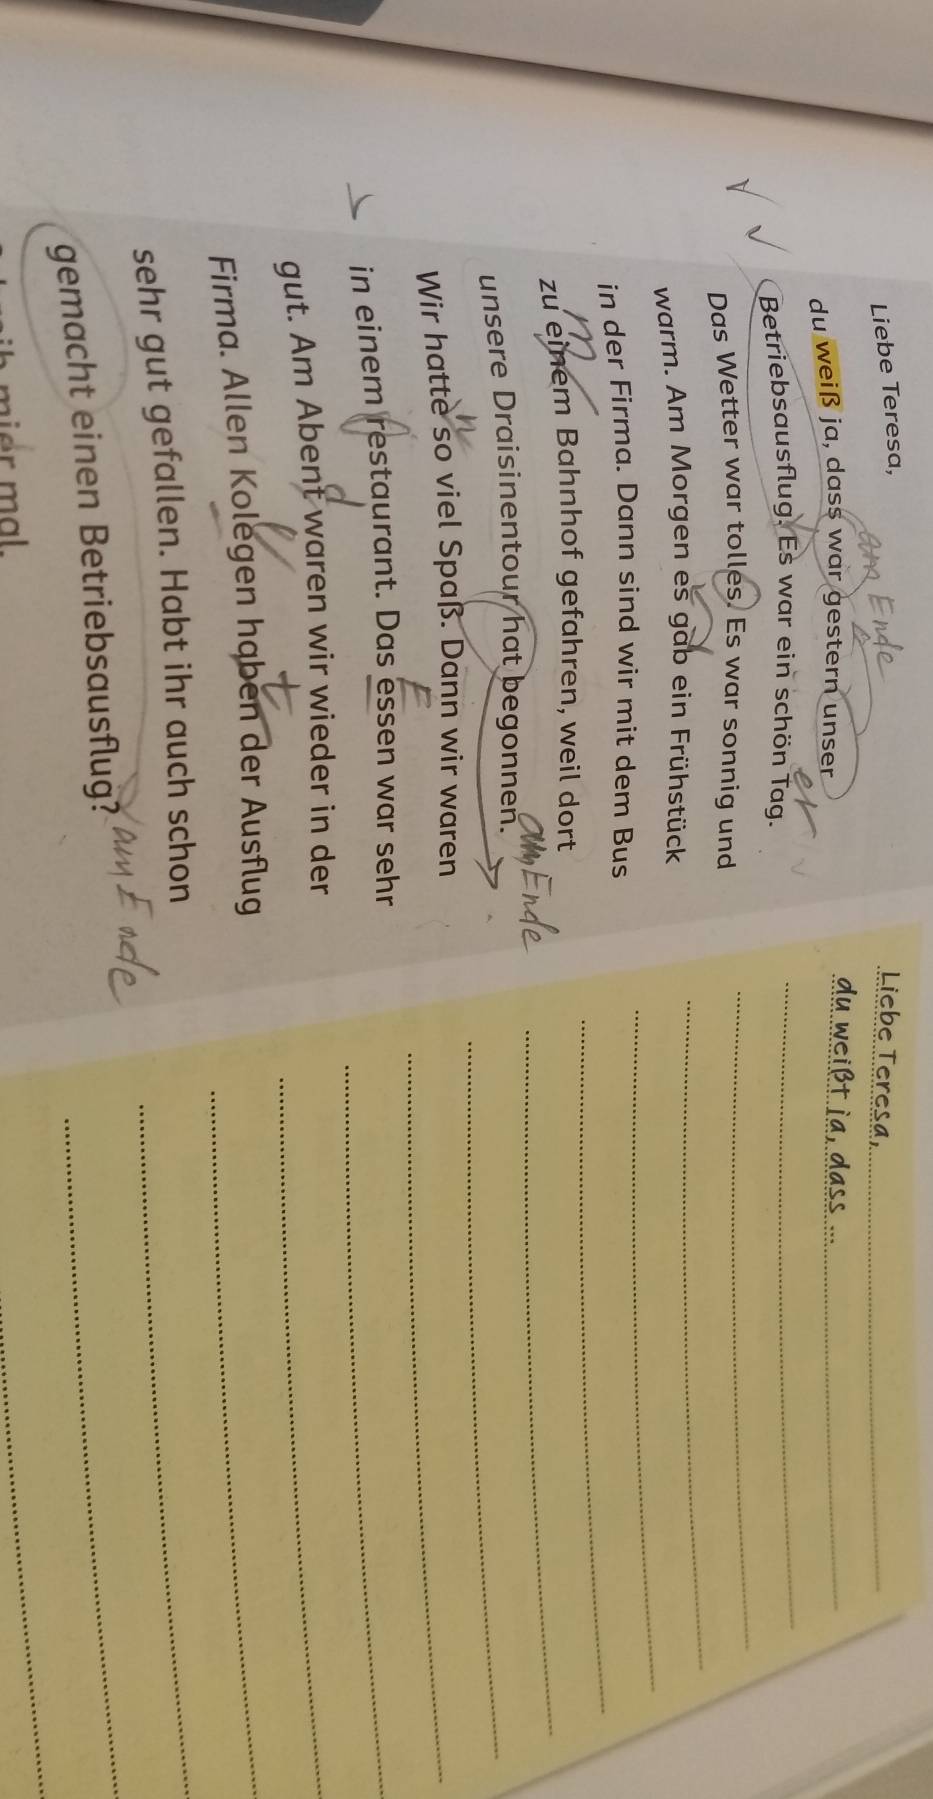 Liebe Teresa,
am Ende
du weiß ja, dass war gestern unser
Betriebsausflug. Es war ein schön Tag.
er
Das Wetter war tolles. Es war sonnig und
warm. Am Morgen es gab ein Frühstück
in der Firma. Dann sind wir mit dem Bus
n
zu einem Bahnhof gefahren, weil dort
am Ende
unsere Draisinentour hat begonnen.
n
Wir hatte so viel Spaß. Dann wir waren
E
in einem restaurant. Das essen war sehr
d
gut. Am Abent waren wir wieder in der
l
t
Firma. Allen Kolegen haben der Ausflug
sehr gut gefallen. Habt ihr auch schon
am Ende
gemacht einen Betriebsausflug?
mier mal.
Liebe Teresa,
du weißt ja, dass ...